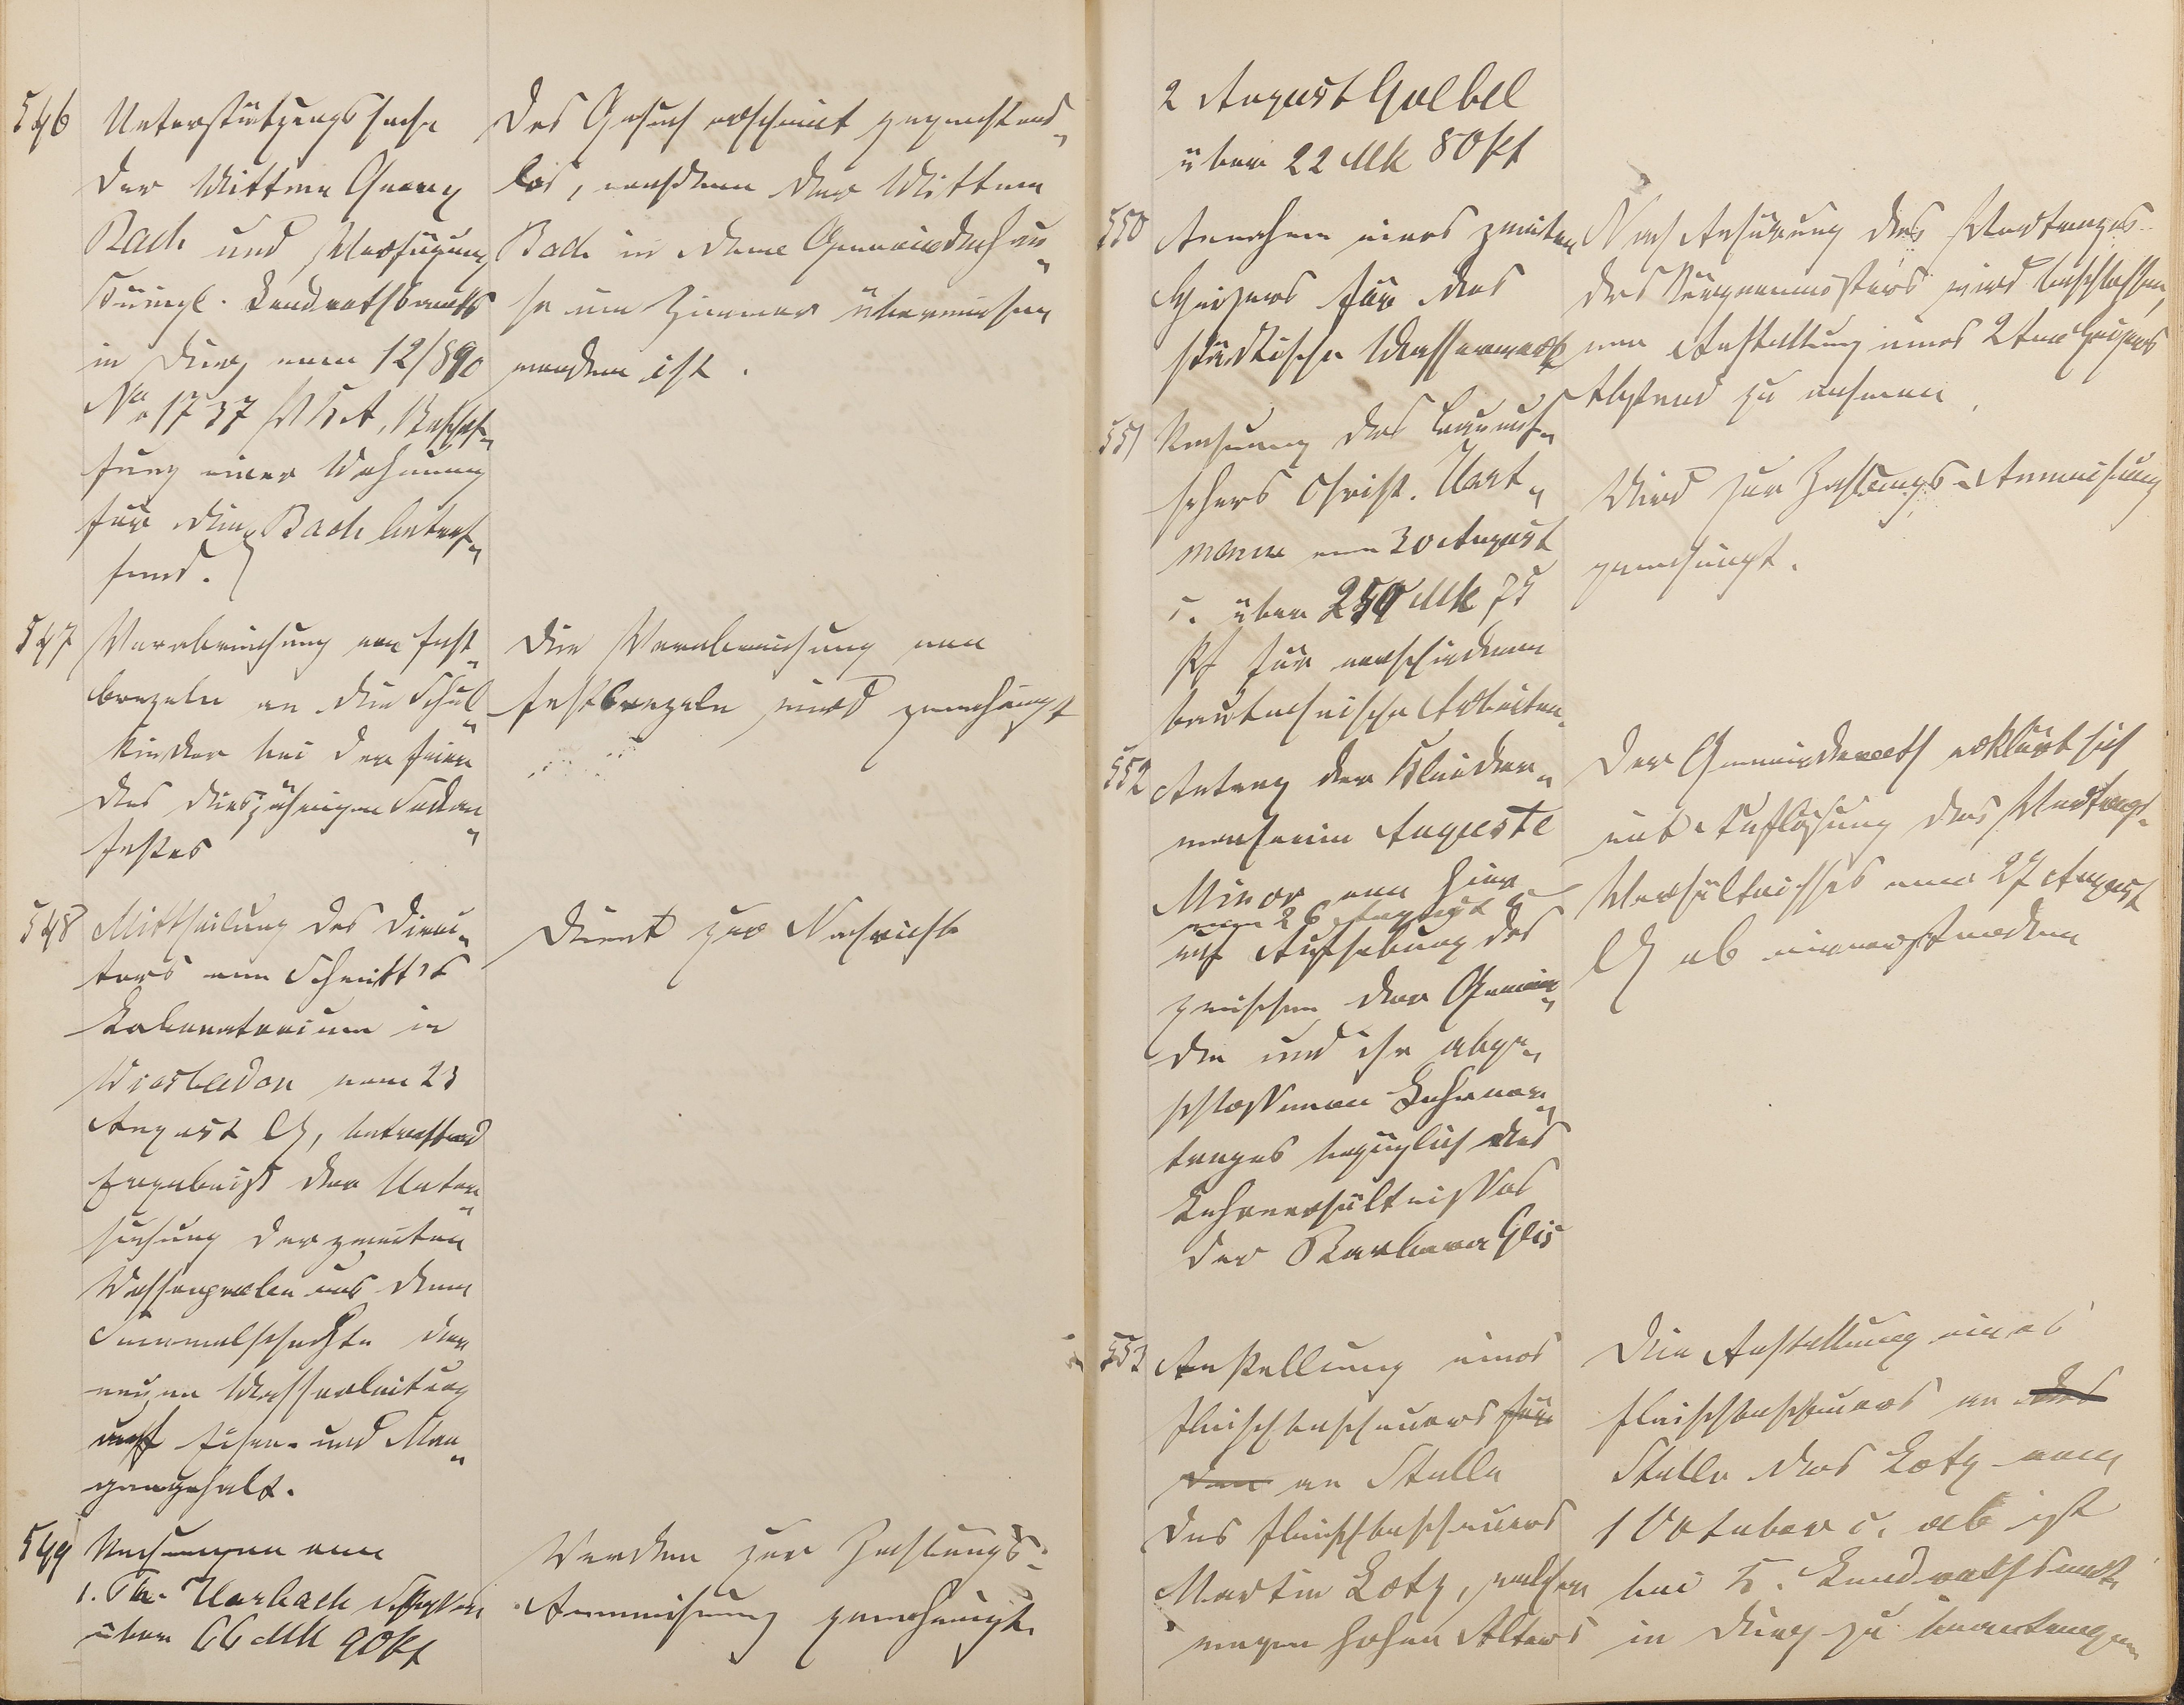 546 Unterstützungssache
der Wittwe Georg
Bach und Verfügung
Königl. Landrathsamts
in Diez vom 12/8 90
No 1737 K A, Beschaf„
fung einer Wohnung
für die Bach betref„
fend.
Das Gesuch erscheint gegenstands„
los, nachdem der Wittwe
Bach in dem Gemeindehau„
se ein Zimmer überwiesen
worden ist.
547 Verabreichung von Fest„
brezeln an die Schul„
kinder bei der Feier
des diesjährigen Sedan„
festes
Die Verabreichung von
Festbrezeln wird genehmigt
548 Mittheilung des Direc„
tors vom Schmitt's
Laboratorium in
Wiesbaden vom 23
August, betreffend
Ergebniß der Unter„
suchung der zweiten
Wasserproben aus dem
Sammelschachte der
neuen Wasserleitung
auf Eisen- und Man„
gangehalt.
Dient zur Nachricht
549 Rechnungen von
1. Harbach
über 66 Mk 90 Pf
Werden zur Zahlungs-
Anweisung genehmigt.
2 August Goebel
über 22 Mk 80 Pf
550 Annahme eines zweiten
Heizers für das
städtische Wasserwerk
Nach Anhörung des Vortrages
des Bürgermeisters wird beschlossen,
von Anstellung eines 2ten Heizers
Abstand zu nehmen.
551 Rechnung des Bauauf„
sehers Christ. Hart„
mann vom 30 August
c. über 259 Mk 75
Pf für verschiedene
bautechnische Arbeiten.
Wird zur Zahlungs-Anweisung
genehmigt.
552 Antrag der Kleider„
macherin Auguste
Minor von hier
vom 26 August
auf Aufhebung des
zwischen der Gemein„
de und ihr abge„
schlossenen Lehrver„
trages bezüglich des
Lehrverhältnisses
der Barbara Geis
Der Gemeinderath erklärt sich
mit Auflösung des Vertrags-
Verhältnisses vom 27 August
ab einverstanden
553 Anstellung eines
Fleischbeschauers für
den an Stelle
des Fleischbeschauers
Martin Lotz, welcher
wegen hohen Alters
Die Anstellung eines
Fleischbeschauers an des
Stelle des Lotz vom
1 Oktober c. ab ist
bei K. Landrathsamte
in Diez zu beantragen